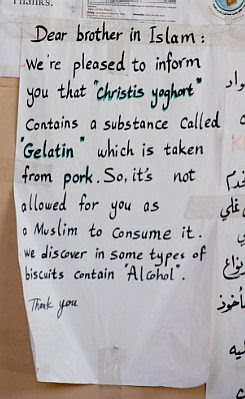 Thanks.
Dear brother in Islam:
We're pleased to inform
you that "Christis yoghort"
Contains a substance Called
"Gelatin" which is taken
from pork. So, it's not
allowed for you as
a Muslim to Consume it.
We discover in some types of
biscuits contain "Alcohol".
Thank you